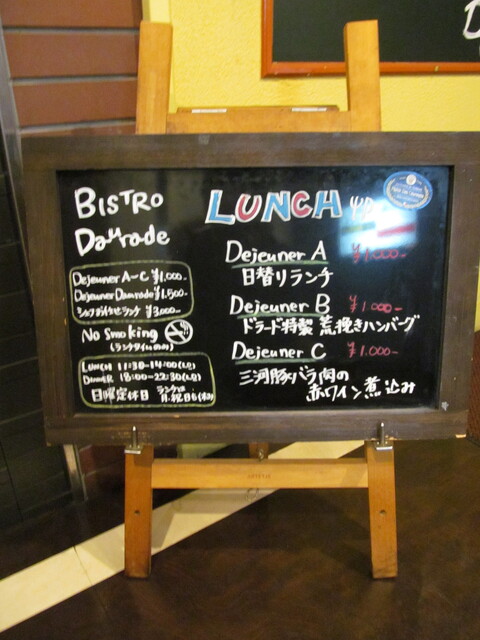 BISTRO
Daurade
Dejeuner A~C ¥1,000-
Dejeuner Daurade ¥1,500-
シェフおまかせランチ ¥3,000-
No Smoking
(ランチタイムのみ)
LUNCH 11:30-14:00(L.O)
DINNER 18:00-22:30(L.O)
日曜定休日
ランチは
月・祝日も(休み)
LUNCH
Dejeuner A ¥1,000-
日替りランチ
Dejeuner B ¥1,000-
ドラード特製 荒挽きハンバーグ
Dejeuner C ¥1,000-
三河豚バラ肉の
赤ワイン煮込み